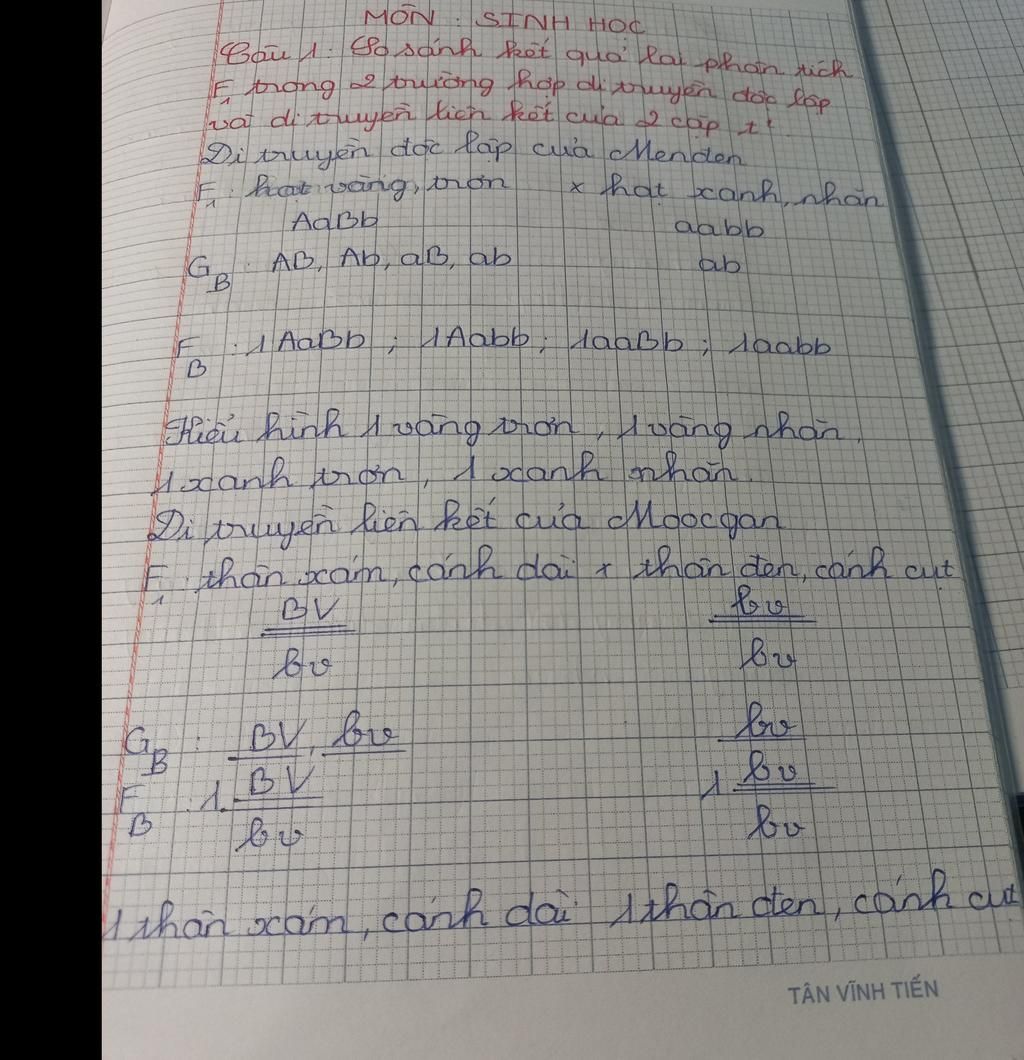 MÔN : SINH HỌC
Câu 1: So sánh kết quả lai phân tích
F1 trong 2 trường hợp di truyền độc lập
và di truyền liên kết của 2 cặp t²
Di truyền độc lập của Menđen
F1 : hạt vàng, trơn x hạt xanh, nhăn
AaBb aabb
GB : AB, Ab, aB, ab ab
FB : 1AaBb ; 1Aabb ; 1aaBb ; 1aabb
Kiểu hình 1 vàng trơn, 1 vàng nhăn,
1 xanh trơn, 1 xanh nhăn.
Di truyền liên kết của Moocgan
F1 : thân xám, cánh dài x thân đen, cánh cụt
BV bv
bv bv
GB : BV, bv bv
FB : 1. BV 1 bv
bv bv
1 thân xám, cánh dài 1 thân đen, cánh cụt
TÂN VĨNH TIẾN